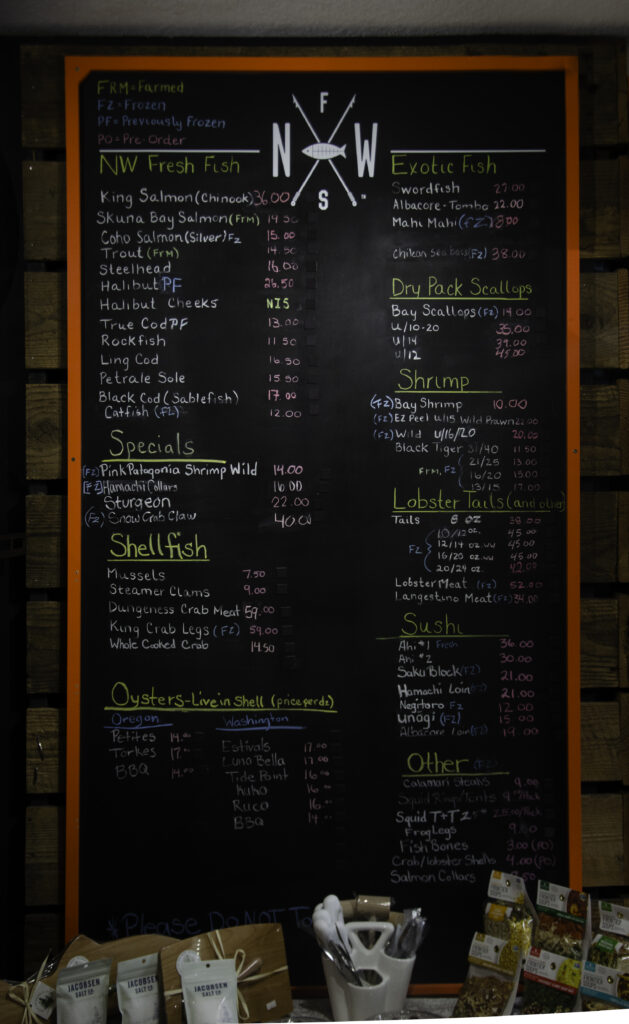 FRM=Farmed
FZ=Frozen
PF=Previously Frozen
PO=Pre-Order
F
N W
S
NW Fresh Fish
King Salmon (Chinook) 36.00
Skuna Bay Salmon (FRM) 19.50
Coho Salmon (Silver) FZ 15.00
Trout (FRM) 14.50
Steelhead 16.00
Halibut PF 26.50
Halibut Cheeks NIS
True Cod PF 13.00
Rockfish 11.50
Ling Cod 16.50
Petrale Sole 15.50
Black Cod (Sablefish) 17.00
Catfish (FZ) 12.00
Specials
(FZ) Pink Patagonia Shrimp Wild 14.00
(FZ) Hamachi Collars 16.00
Sturgeon 22.00
(FZ) Snow Crab Claw 40.00
Shellfish
Mussels 7.50
Steamer Clams 9.00
Dungeness Crab Meat 59.00
King Crab Legs (FZ) 59.00
Whole Cooked Crab 14.50
Oysters-Live in Shell (price per dz)
Oregon
Petites 14.00
Torkes 17.00
BBQ 14.00
Washington
Estivals 17.00
Luna Bella 17.00
Tide Point 16.00
Kuko 16.00
Ruco 16.00
BBQ 14.00
*Please Do NOT To
Exotic Fish
Swordfish 27.00
Albacore-Tombo 22.00
Mahi Mahi (FZ)
Chilean Seabass (FZ) 38.00
Dry Pack Scallops
Bay Scallops (FZ) 14.00
U/10-20 35.00
U/14 39.00
U/12 45.00
Shrimp
(FZ) Bay Shrimp 10.00
(FZ) EZ Peel U/15 Wild Prawn 22.00
(FZ) Wild U/16/20 20.00
Black Tiger 31/40 11.50
21/25 13.00
FRM, FZ 16/20 15.00
13/15 17.00
Lobster Tails (and other)
Tails 8 oz 38.00
10/12 oz. 45.00
FZ 12/14 oz. WW 45.00
16/20 oz. WW 45.00
20/24 oz. 42.00
Lobster Meat (FZ) 52.00
Langostino Meat (FZ) 34.00
Sushi
Ahi #1 Fresh 36.00
Ahi #2 30.00
Saku Block (FZ) 21.00
Hamachi Loin (FZ) 21.00
Negitoro FZ 12.00
Unagi (FZ) 15.00
Albacore Loin (FZ) 19.00
Other (FZ)
Calamari Steaks 9.00
Squid Rings/Tents
Squid T+T
Frog Legs 9.50
Fish Bones 3.00 (PO)
Crab/Lobster Shells 4.00 (PO)
Salmon Collars
JACOBSEN
SALT CO.
JACOBSEN
SALT CO.
JACOBSEN
SALT CO.